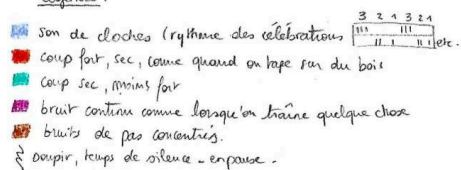 Légende :
3 2 1 3 2 1
son de cloches (rythme des célébrations etc.
coup fort, sec, comme quand on tape sur du bois
coup sec, moins fort
bruit continu comme lorsqu'on traîne quelque chose
bruits de pas concentrés.
soupir, temps de silence - en pause.